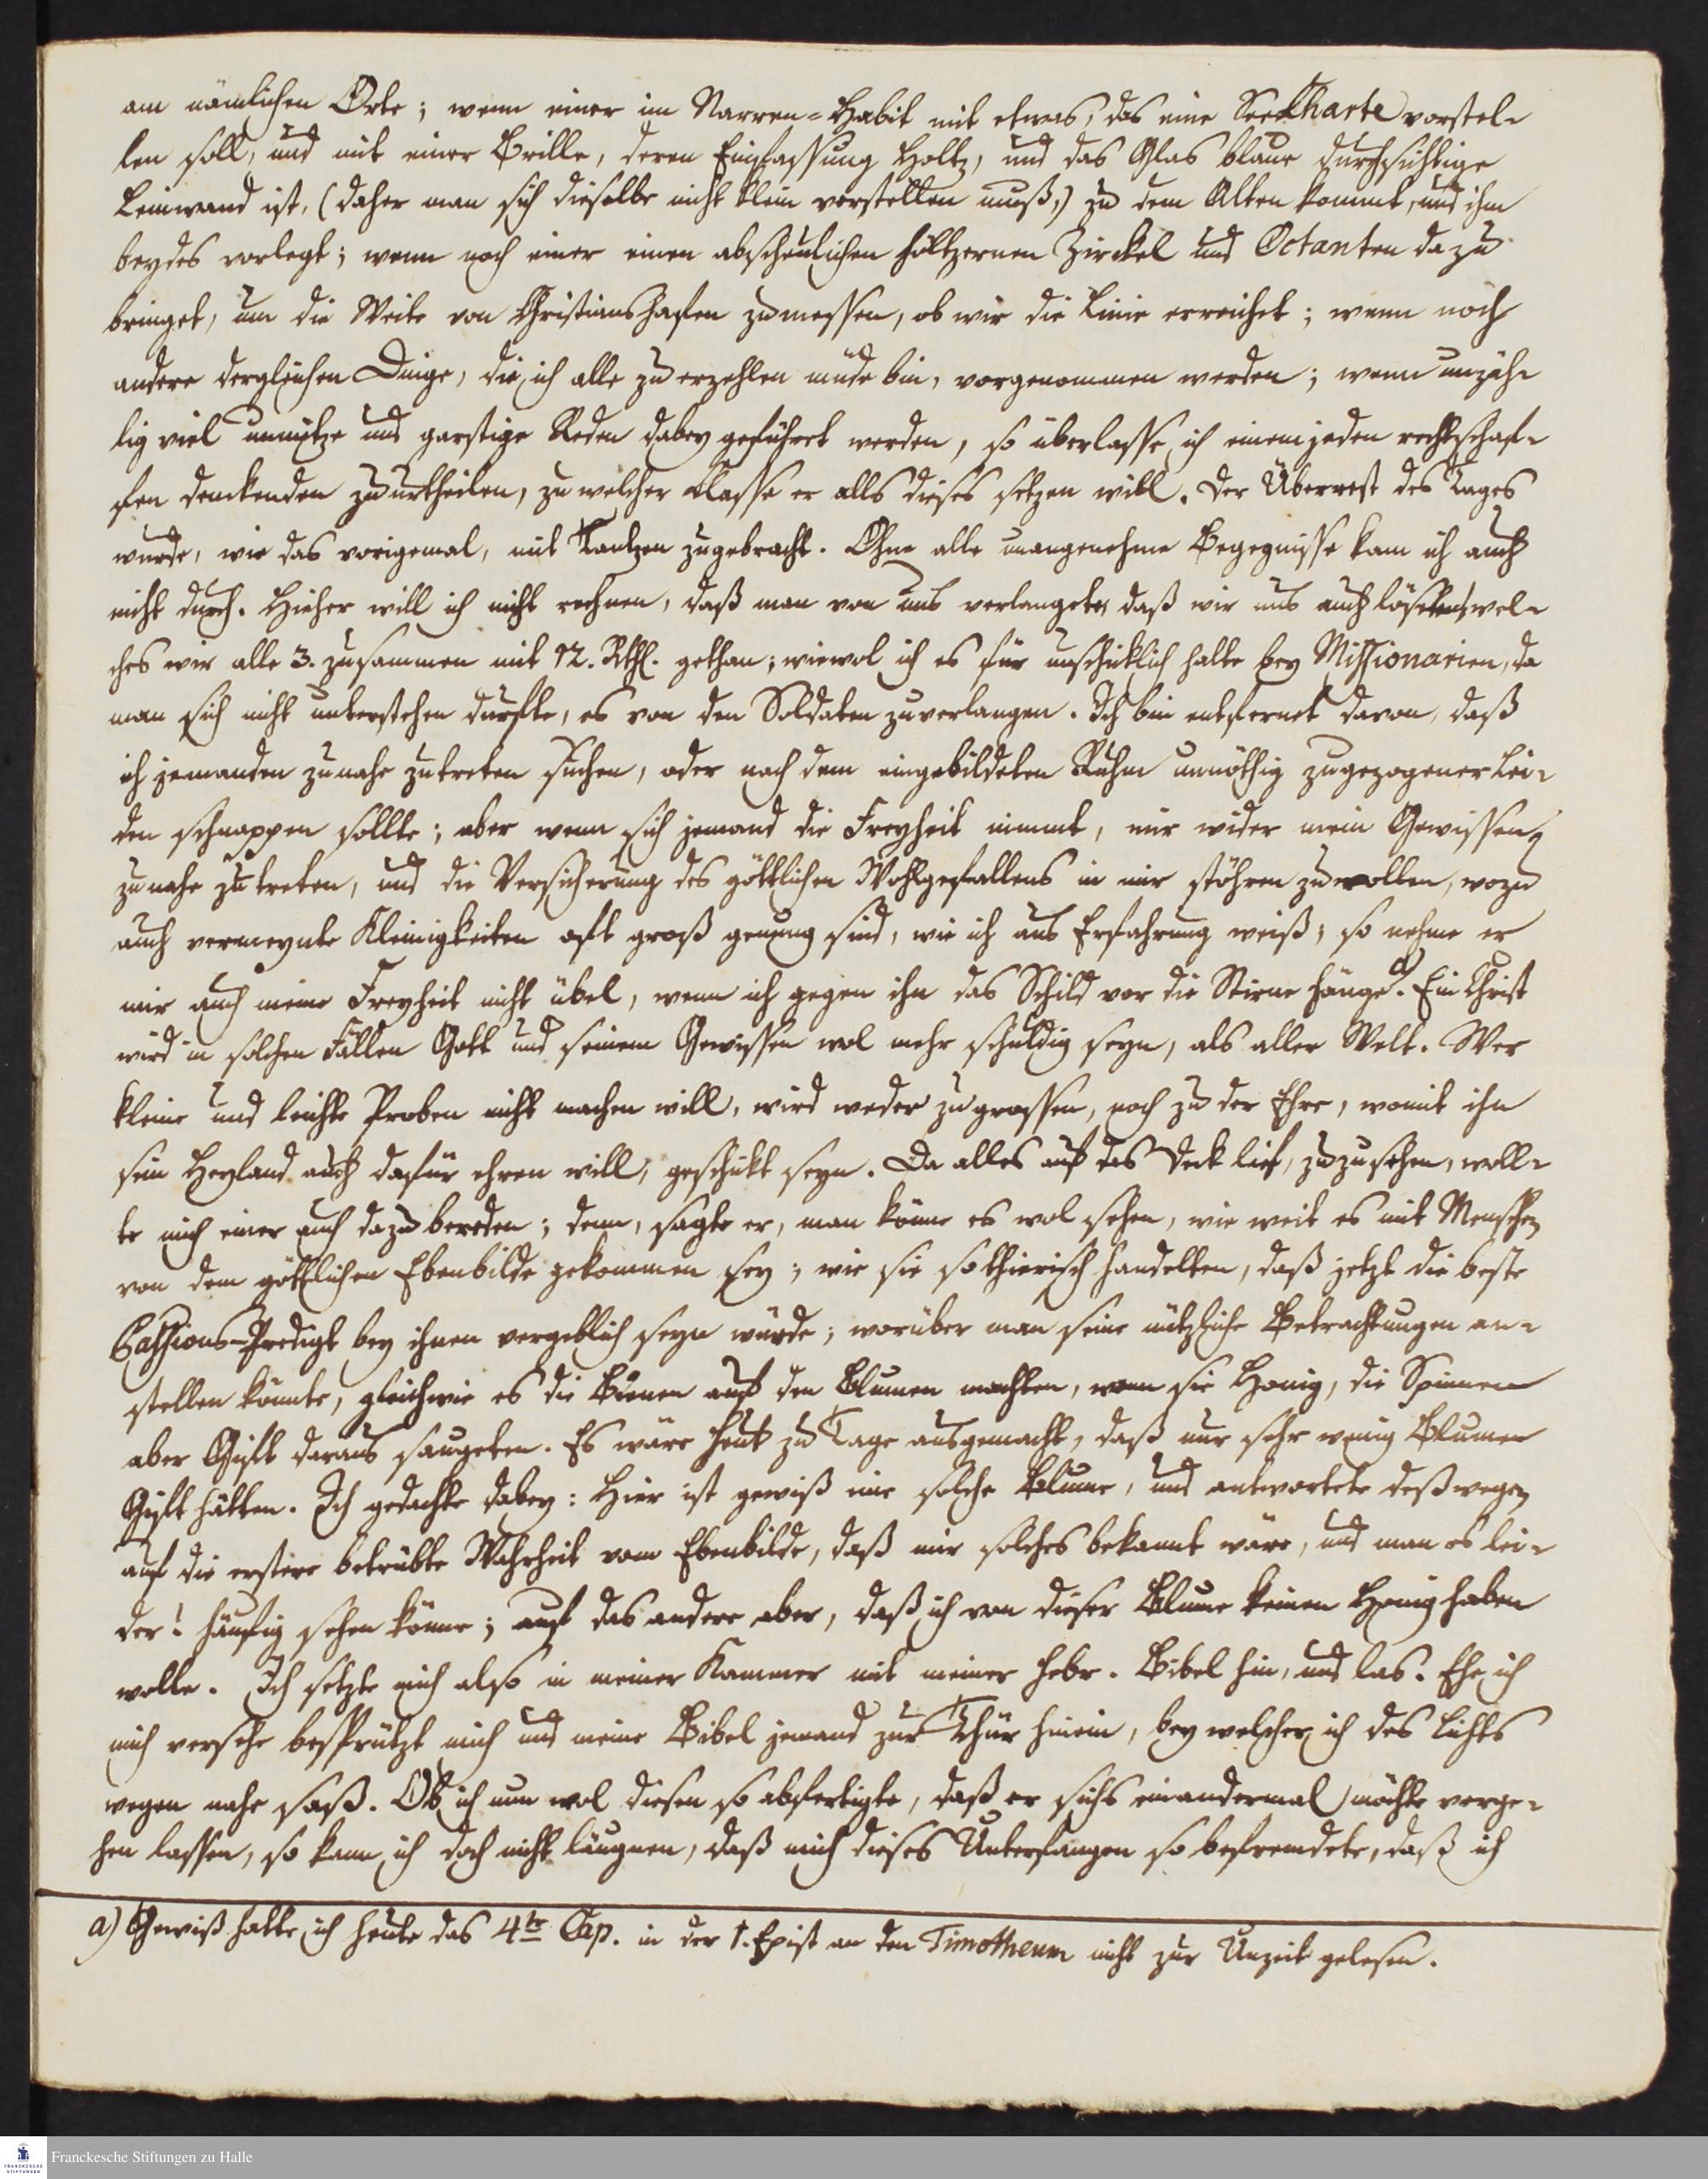 am nämlichen Orte; wenn einer im Narren-Habit mit etwas, das eine SeeCharte vorstel-
len soll, und mit einer Brille, deren Einfassung Holtz, und das Glas blaue durchsichtige
Leinwand ist, (daher man sich dieselbe nicht klein vorstellen muß,) zu dem Alten kommt, und ihm
beydes vorlegt; wenn noch einer einen abscheulichen höltzernen Zirckel und Octanten dazu
bringet, um die Weite von Christianshafen zu messen, ob wir die Linie erreichet; wenn noch
andere dergleichen Dinge, die ich alle zu erzehlen müde bin, vorgenommen werden; wenn unzäh-
lig viel unnütze und garstige Reden dabey geführet werden, so überlasse ich einem jeden rechtschaf-
fen denckenden zu urtheilen, zu welcher Classe er alls dieses setzen will. Der Überrest des Tages
wurde, wie das vorigemal, mit Tantzen zugebracht. Ohne alle unangenehme Begegnisse kam ich auch
nicht durch. Hieher will ich nicht rechnen, daß man von uns verlangete, daß wir uns auch löseten, wel-
ches wir alle 3. zusammen mit 12. Rthl. gethan; wiewol ich es für unschicklich halte bey Missionarien, da
man sich nicht unterstehen durfte, es von den Soldaten zu verlangen. Ich bin entfernet davon, daß
ich jemanden zu nahe zu treten suchen, oder nach dem eingebildeten Ruhm unnöthig zugezogener Lei-
den schnappen sollte; aber wenn sich jemand die Freyheit nimmt, mir wider mein Gewissen
zu nahe zu treten, und die Versicherung des göttlichen Wohlgefallens in mir stöhren zu wollen, wozu
auch vermeynte Kleinigkeiten oft groß genung sind, wie ich aus Erfahrung weiß; so nehme er
mir auch meine Freyheit nicht übel, wenn ich gegen ihn das Schild vor die Stirne hänge a). Ein Christ
wird in solchen Fällen Gott und seinem Gewissen wol mehr schuldig seyn, als aller Welt. Wer
kleine und leichte Proben nicht machen will, wird weder zu grossen, noch zu der Ehre, womit ihn
sein Heyland auch dafür ehren will, geschickt seyn. Da alles auf das Deck lief, zuzusehen, woll-
te mich einer auch dazu bereden; denn, sagte er, man könne es wol sehen, wie weit es mit Menschen
von dem göttlichen Ebenbilde gekommen sey; wie sie so thierisch handelten, daß jetzt die beste
Passions-Predigt bey ihnen vergeblich seyn würde; worüber man seine nützliche Betrachtungen an-
stellen könnte, gleichwie es die Bienen auf den Blumen machten, wenn sie Honig, die Spinnen
aber Gift daraus saugeten. Es wäre heut zu Tage ausgemacht, daß nur sehr wenig Blumen
Gift hätten. Ich gedachte dabey: Hier ist gewiß eine solche Blume, und antwortete deßwegen
auf die erstere betrübte Wahrheit vom Ebenbilde, daß mir solches bekannt wäre, und man es lei-
der! häufig sehen könne; auf das andere aber, daß ich von dieser Blume keinen Honig haben
wolle. Ich setzte mich also in meiner Kammer mit meiner hebr. Bibel hin, und las. Ehe ich
mich versehe besprützt mich und meine Bibel jemand zur Thür hinein, bey welcher ich des Lichts
wegen nahe saß. Ob ich nun wol diesen so abfertigte, daß er sichs ein andermal möchte verge-
hen lassen, so kann ich doch nicht läugnen, daß mich dieses Unterfangen so befremdete, daß ich
a) Gewiß hatte ich heute das 4te Cap. in der 1. Epist an den Timotheum nicht zur Unzeit gelesen.
Franckesche Stiftungen zu Halle